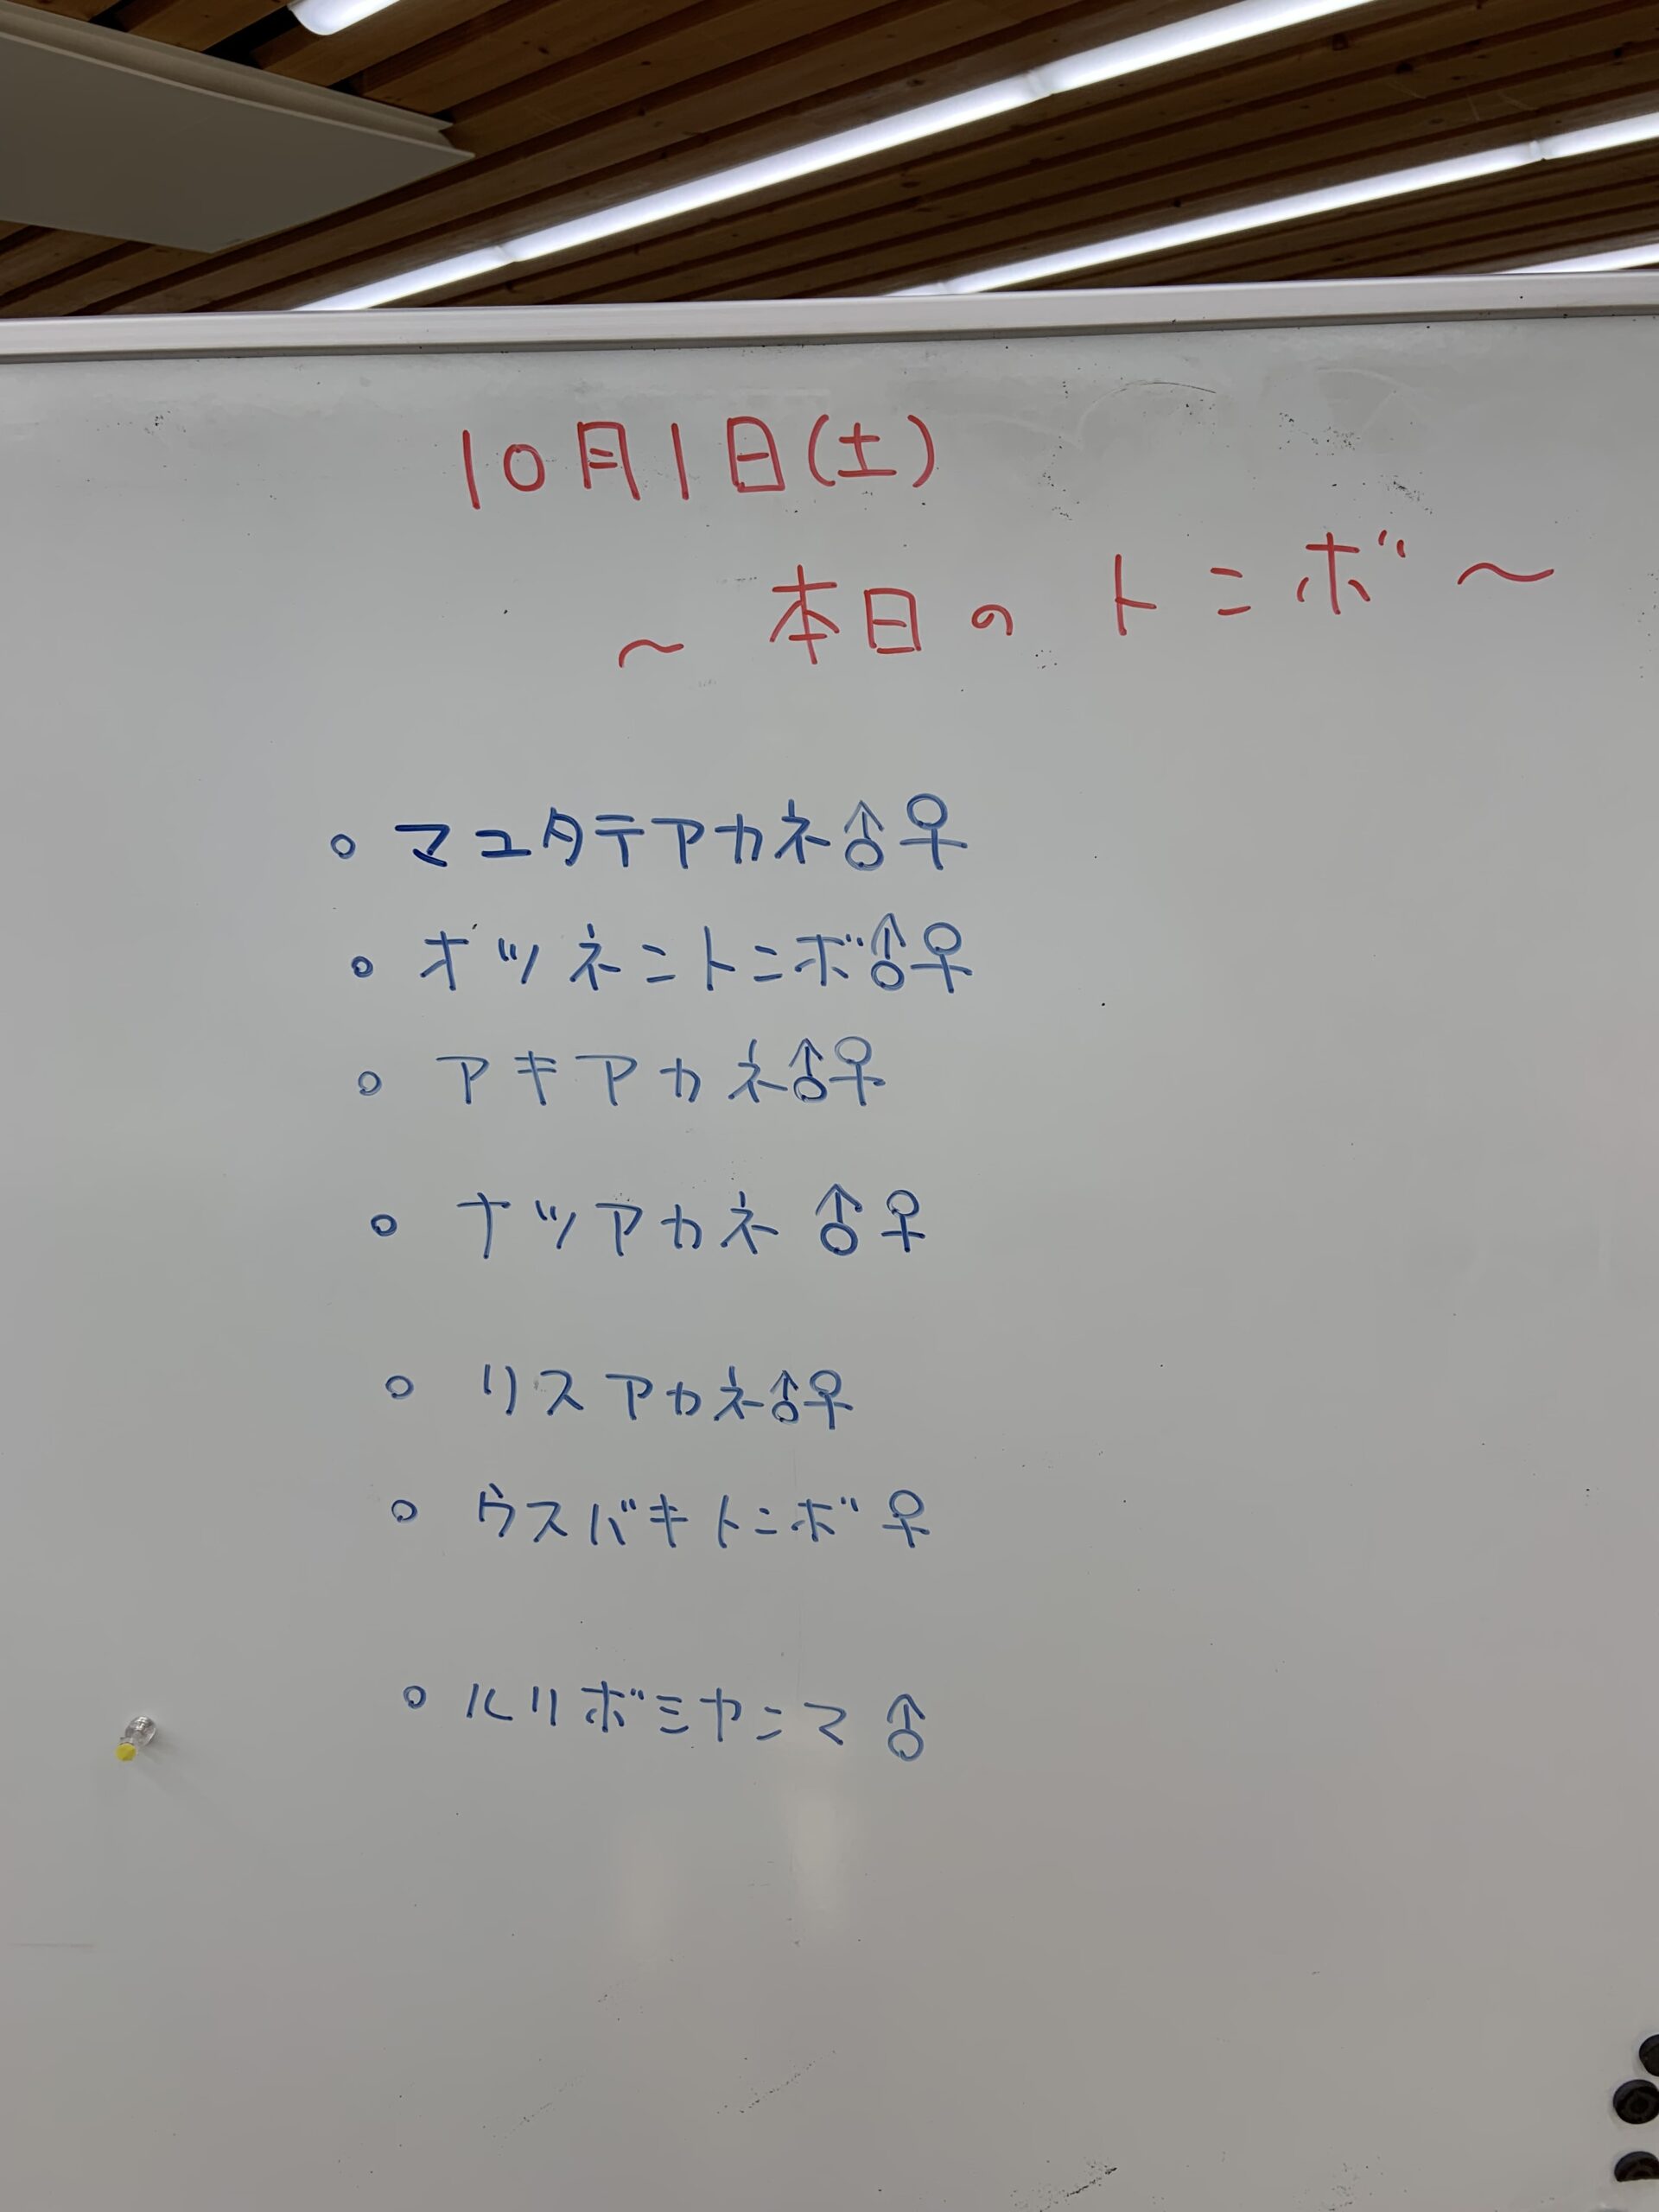 10月1日(土)
～本日のトンボ～
○マユタテアカネ♂♀
○オツネントンボ♂♀
○アキアカネ♂♀
○ナツアカネ♂♀
○リスアカネ♂♀
○ウスバキトンボ♀
○ルリボシヤンマ♂